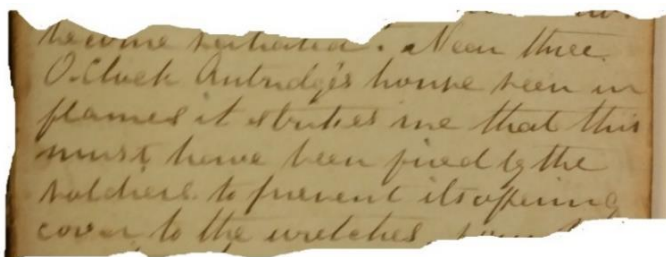 become
. Near three
O.Clock Antridge's house seen in
flames it strikes me that this
must have been fired by the
soldiers to prevent its offering
cover to the wretches